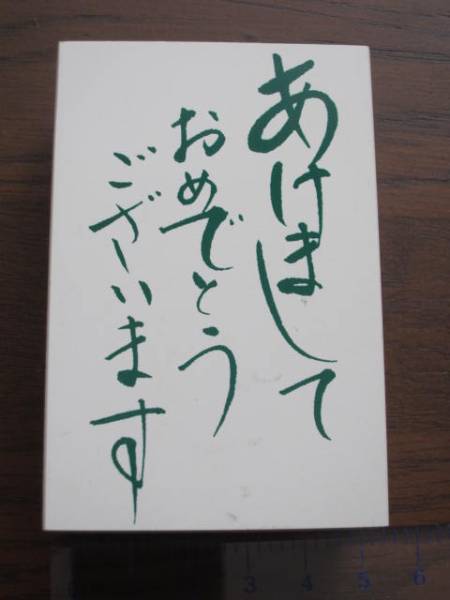 あけまして
おめでとう
ございます
3 4 5 6